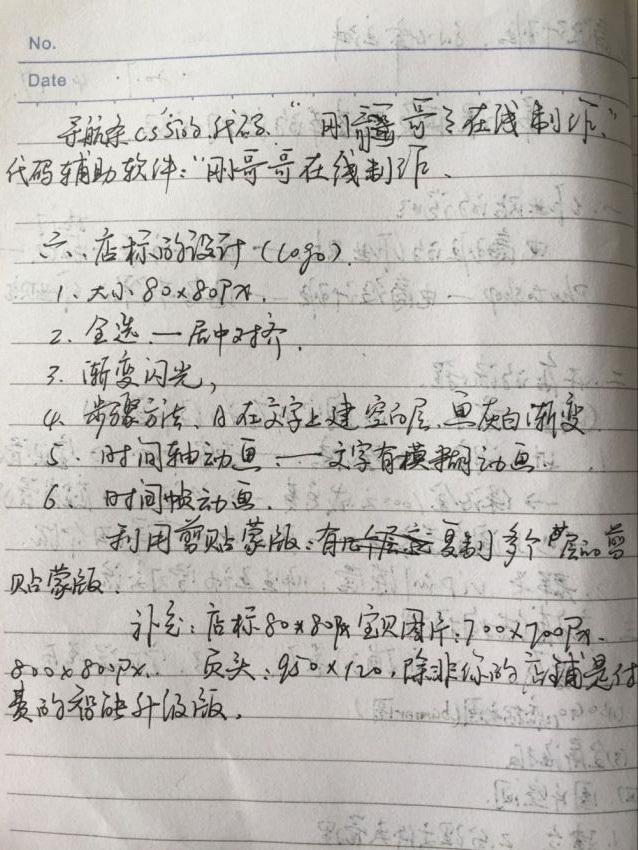 No.
Date
导航条css的代码."刚哥哥在线制作"
代码辅助软件:"刚哥哥在线制作.
六、店标的设计(logo).
1、大小80x80px.
2. 全选.一居中对齐.
3. 渐变闪光,
4、步骤方法、A在文字上建空的层.画灰白渐变
5、时间轴动画.——文字有模糊动画.
6 时间帧动画.
利用剪贴蒙版:复制多个层的剪
贴蒙版.
补充:店标80x80px宝贝图片:700x700px.
800x800px. 页头:950x120,除非你的店铺是付
费的智能升级版.